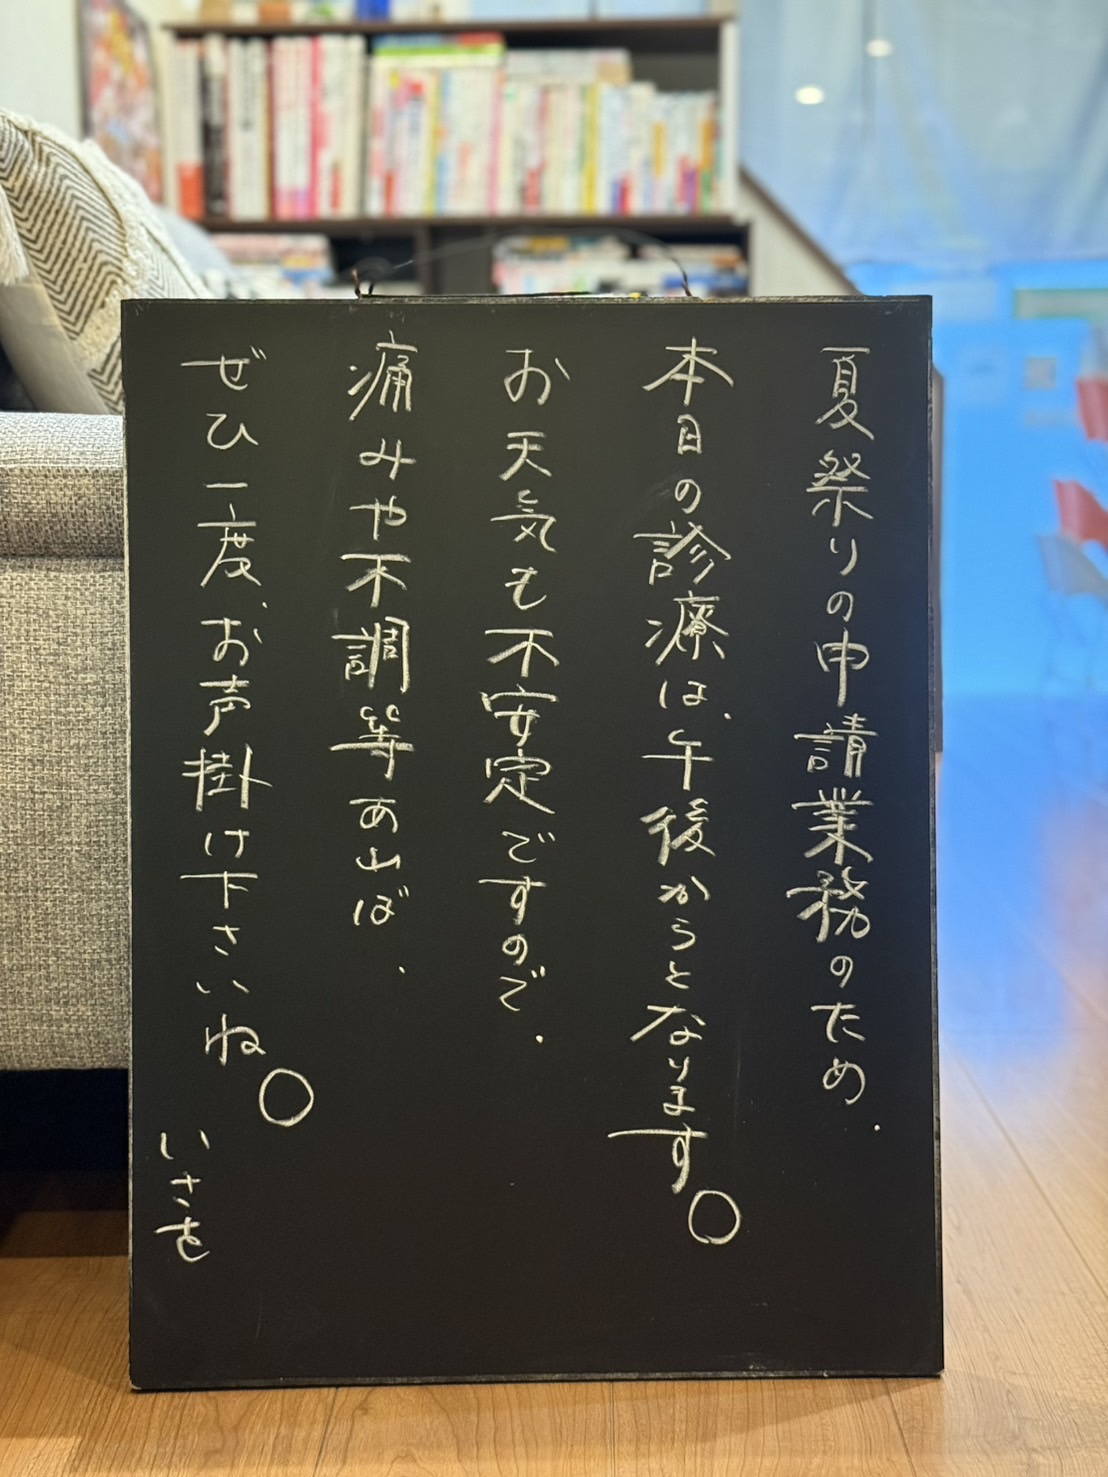 夏祭りの申請業務のため、
本日の診療は、午後からとなります。
お天気も不安定ですので、
痛みや不調等あれば、
ぜひ一度、お声掛け下さいね。
いさを